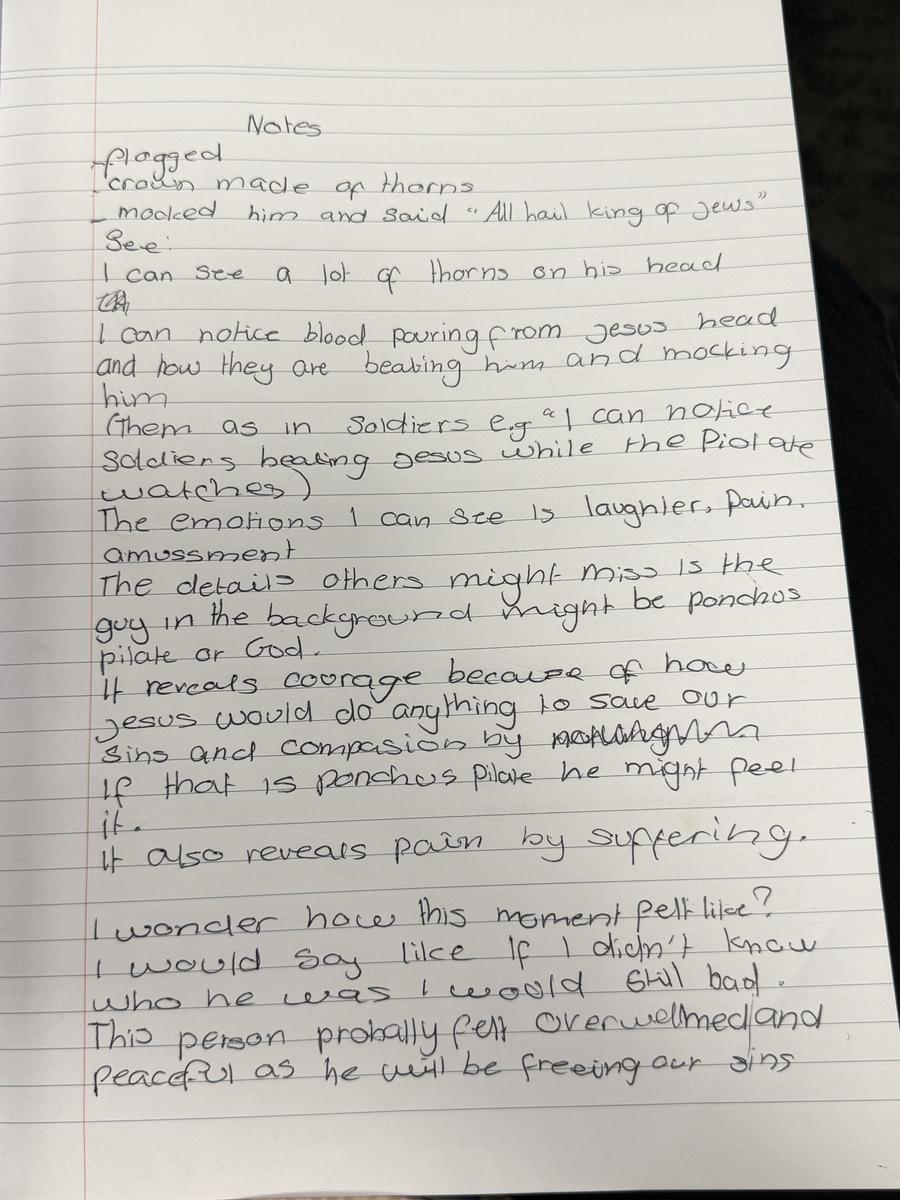 Notes
-flogged
-crown made of thorns
- mocked him and said "All hail king of Jews"
See:
I can see a lot of thorns on his head
I can notice blood pouring from Jesus head
and how they are beating him and mocking
him
(them as in Soldiers e.g "I can notice
soldiers beating Jesus while the Piolate
watches)
The emotions I can see is laughter, pain,
amussment
The details others might miss is the
guy in the background might be ponchos
pilate or God.
It reveals courage because of how
Jesus would do anything to save our
sins and compasion by
If that is ponchus pilate he might feel
it.
It also reveals pain by suffering.
I wonder how this moment felt like?
I would say like if I didn't know
who he was I would still bad.
This person probally felt overwelmed and
peaceful as he will be freeing our sins